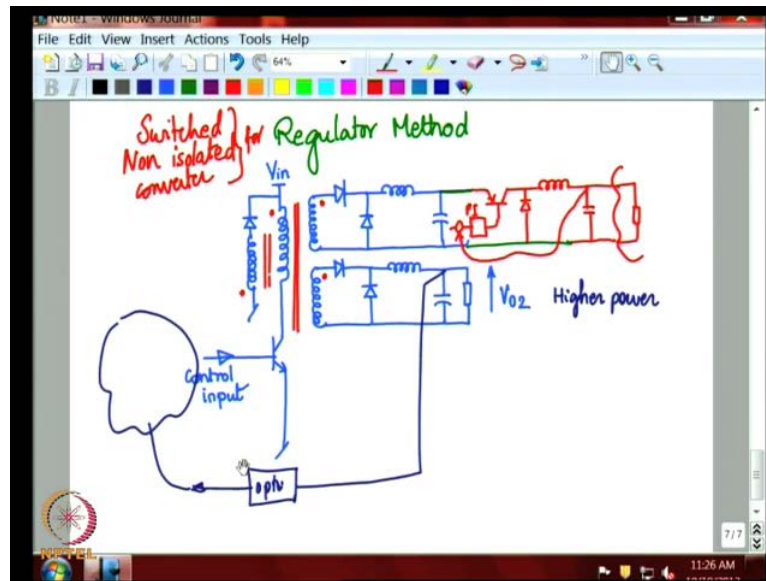 Note1 - Windows Journal
File Edit View Insert Actions Tools Help
64%
B I
Switched
Non isolated
converter
for Regulator Method
Vin
PI
V02 Higher power
Control
input
opto
NPTEL
7/7
11:26 AM